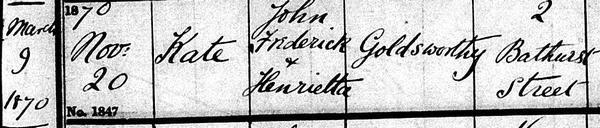 March
9
1870
1870
Nov:
20
No. 1847
Kate
John
Frederick
&
Henrietta
Goldsworthy
2
Bathurst
Street